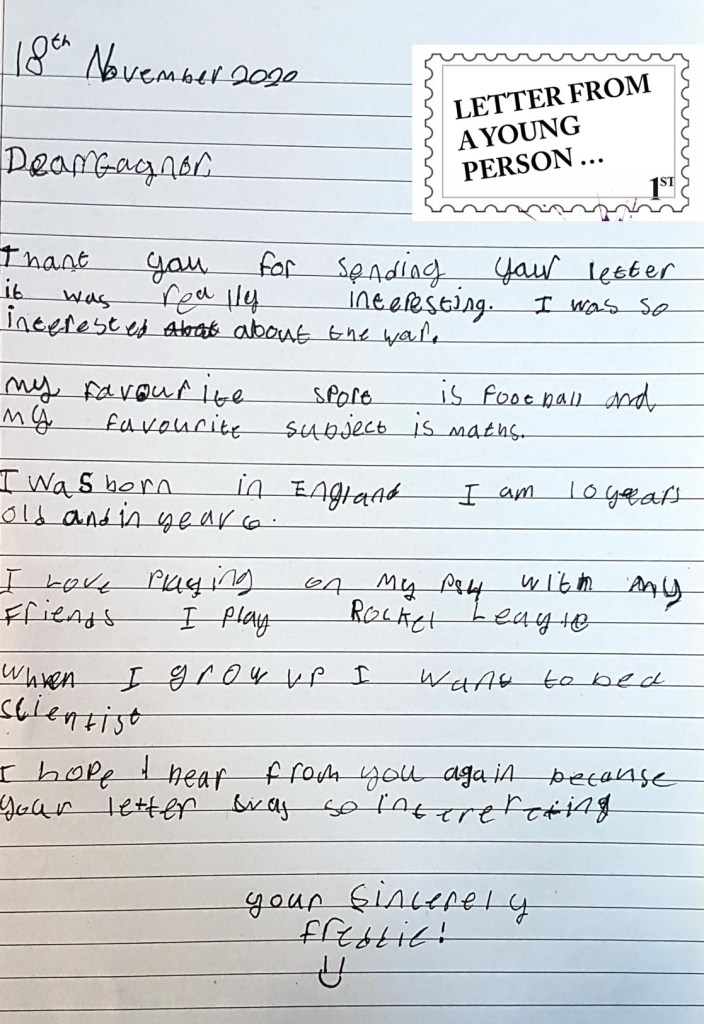 18th November 2020
LETTER FROM
A YOUNG
PERSON ...
1ST
Dear Gagnor,
Thank you for sending your letter
it was really interesting. I was so
interested about the war.
my favourite sport is football and
my favourite subject is maths.
I was born in England I am 10 years
old and in year 6.
I love playing on my PS4 with my
friends I play Rocket League
when I grow up I want to be a
scientist
I hope I hear from you again because
your letter was so interesting
your sincerely
freddie!